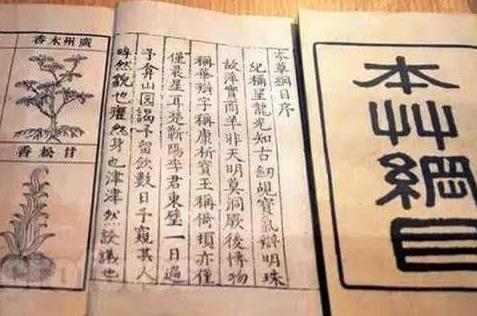 本艸綱目
本草綱目序
紀稱望龍光知古劍覘寶氣辯明珠
故萍實商羊非天明莫洞厥後博物
稱華辯字稱康析寶王稱倚頓亦僅
僅晨星耳楚蘄陽李君東壁一日過
予弇山园謁予留飲數日予窺其人
睟然貌也癯然身也津津然談議也
廣州木香
甘松香